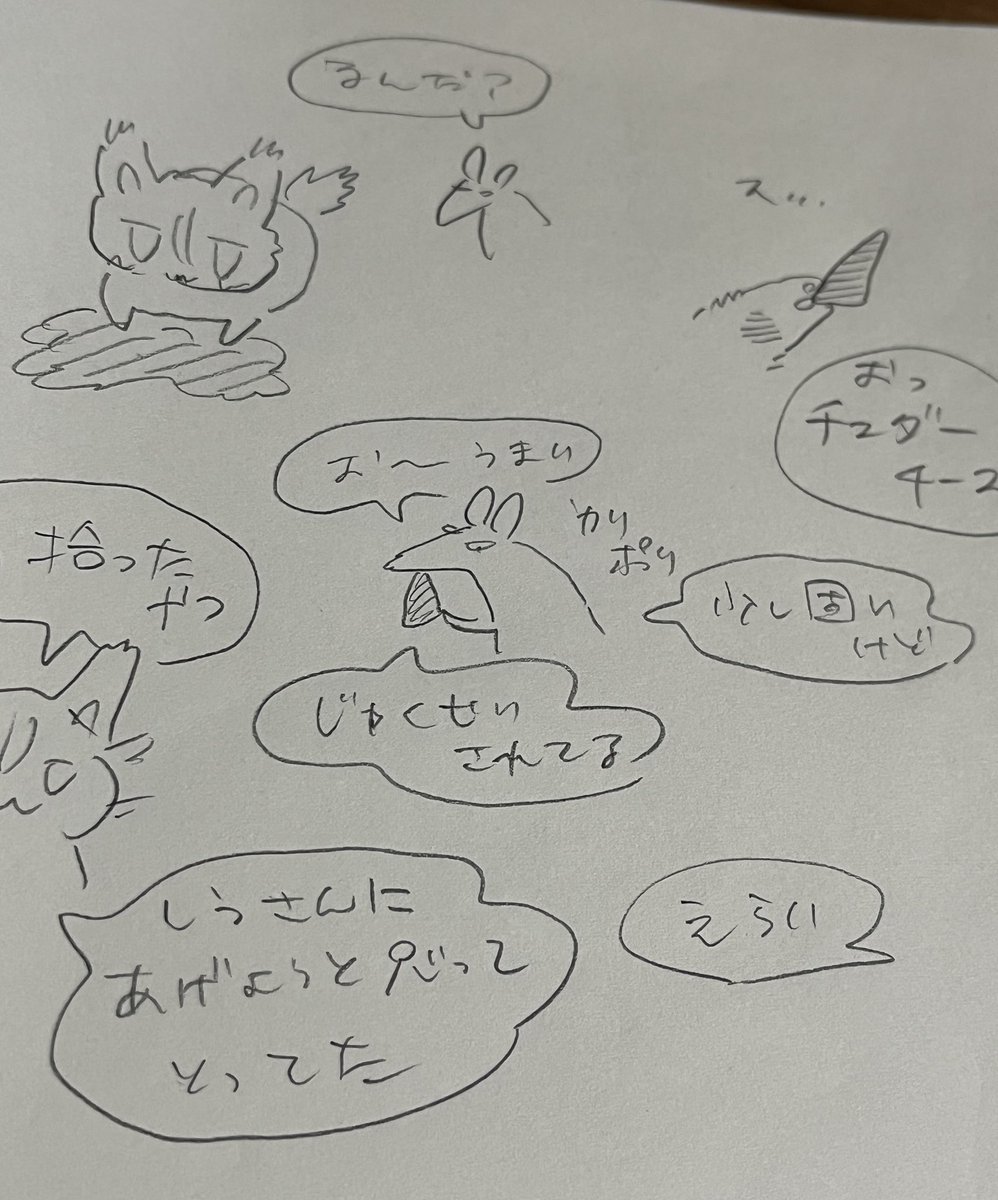 るんだ?
ス…
おっ
チェダー
チーズ
お〜うまい
かり
ポリ
少し固い
けど
じゅくせい
されてる
拾った
やつ
しうさんに
あげようと思って
とってた
えらい